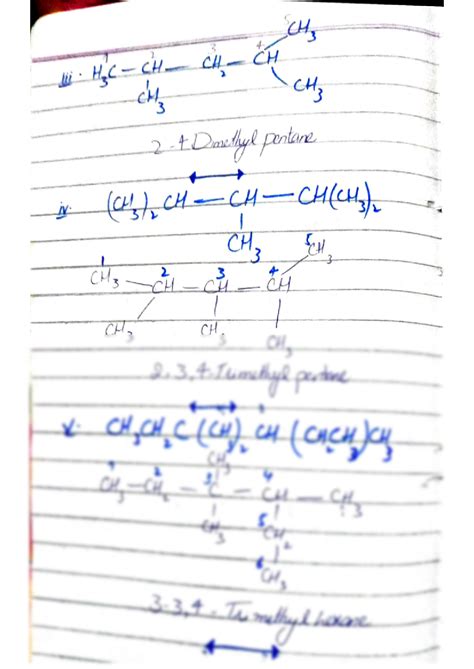 5 CH3
iii. H3C - CH - CH2 - CH
1 2 3 4
CH3 CH3
2-4 Dimethyl pentane
iv. (CH3)2 CH — CH — CH(CH3)2
CH3
1 2 3 4 5
CH3 — CH — CH — CH — CH3
CH3 CH3 CH3
2,3,4-Trimethyl pentane
v. CH3CH2C(CH3)2 CH (CH2CH3)CH3
CH3
1 2 3 4
CH3 - CH2 - C - CH - CH3
CH3 5 CH2
6 CH3
3-3,4-Trimethyl hexane